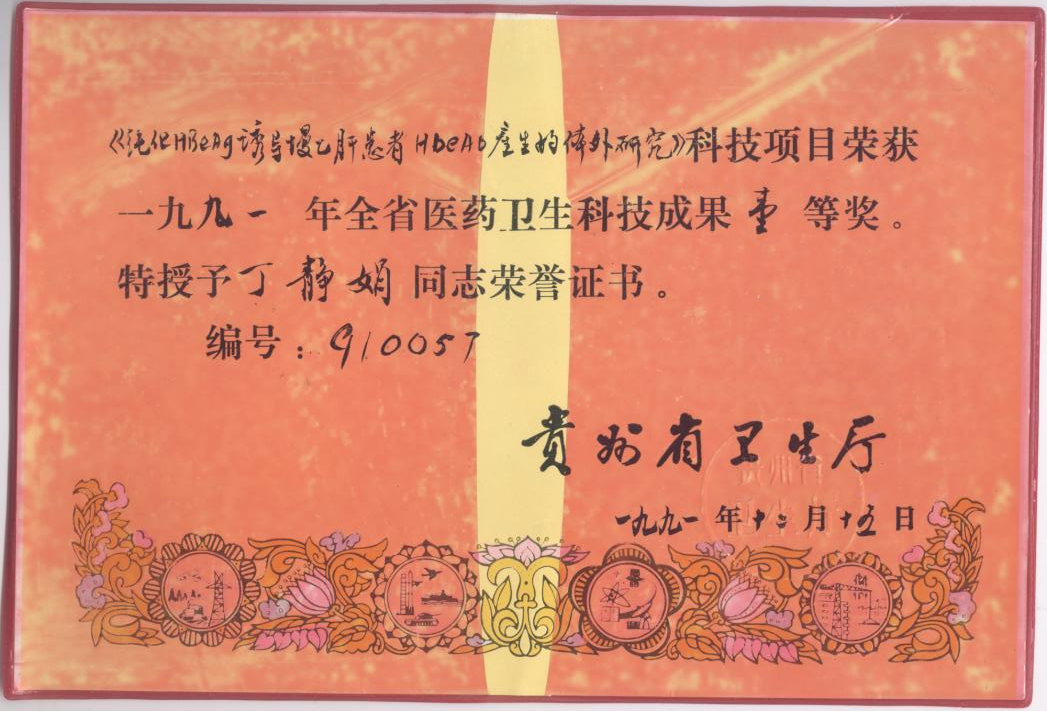 《纯化HBeAg诱导慢乙肝患者HbeAb产生的体外研究》科技项目荣获
一九九一 年全省医药卫生科技成果 壹 等奖。
特授予丁静娟 同志荣誉证书。
编号：910057
贵州省卫生厅
一九九一年十二月十五日